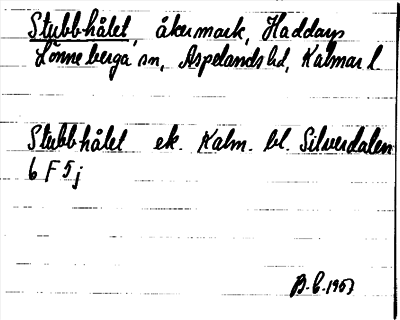 Stubbhålet, åkermark, Haddarp
Lönneberga sn, Aspelands hd, Kalmar l
Stubbhålet ek. Kalm. bl. Silverdalen
6 F 5 j
B. E. 1957